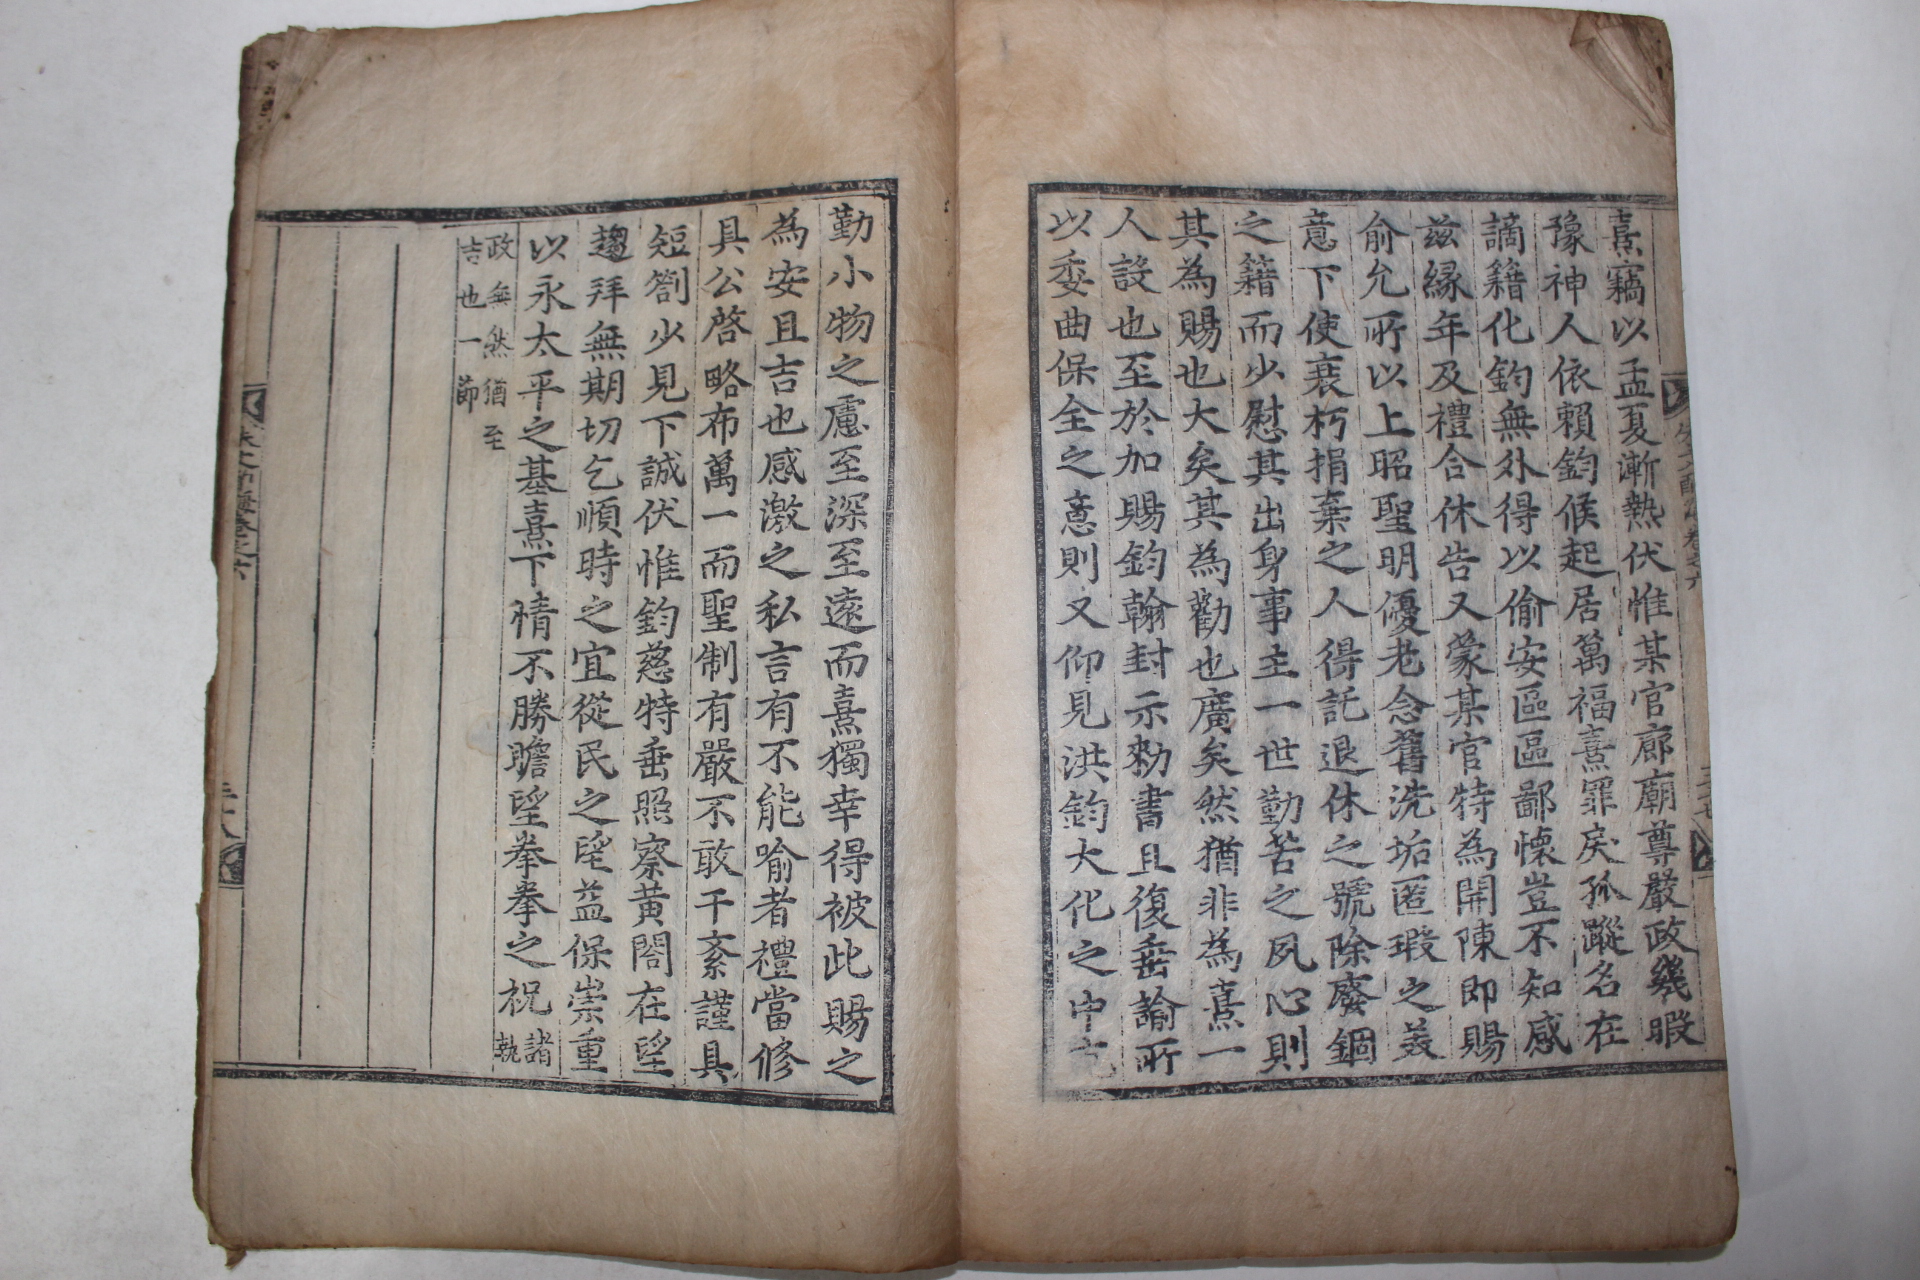 熹竊以孟夏漸熱伏惟某官廊廟尊嚴政幾暇
豫神人依賴鈞候起居萬福熹罪戾孤蹤名在
謫籍化鈞無外得以偷安區區鄙懷豈不知感
茲緣年及禮合休告又蒙某官特為開陳即賜
俞允所以上昭聖明優老念舊洗垢匿瑕之美
意下使衰朽捐棄之人得託退休之號除廢錮
之籍而少慰其出身事主一世勤苦之夙心則
其為賜也大矣其為勸也廣矣然猶非為熹一
人設也至於加賜鈞翰封示勑書且復垂諭所
以委曲保全之意則又仰見洪鈞大化之中
勤小物之慮至深至遠而熹獨幸得被此賜之
為安且吉也感激之私言有不能喻者禮當修
具公啓略布萬一而聖制有嚴不敢干紊謹具
短劄少見下誠伏惟鈞慈特垂照察黃閤在望
趨拜無期切乞順時之宜從民之望益保崇重
以永太平之基熹下情不勝瞻望拳拳之祝 諸執
政無然猶至
吉也一節
卷之六